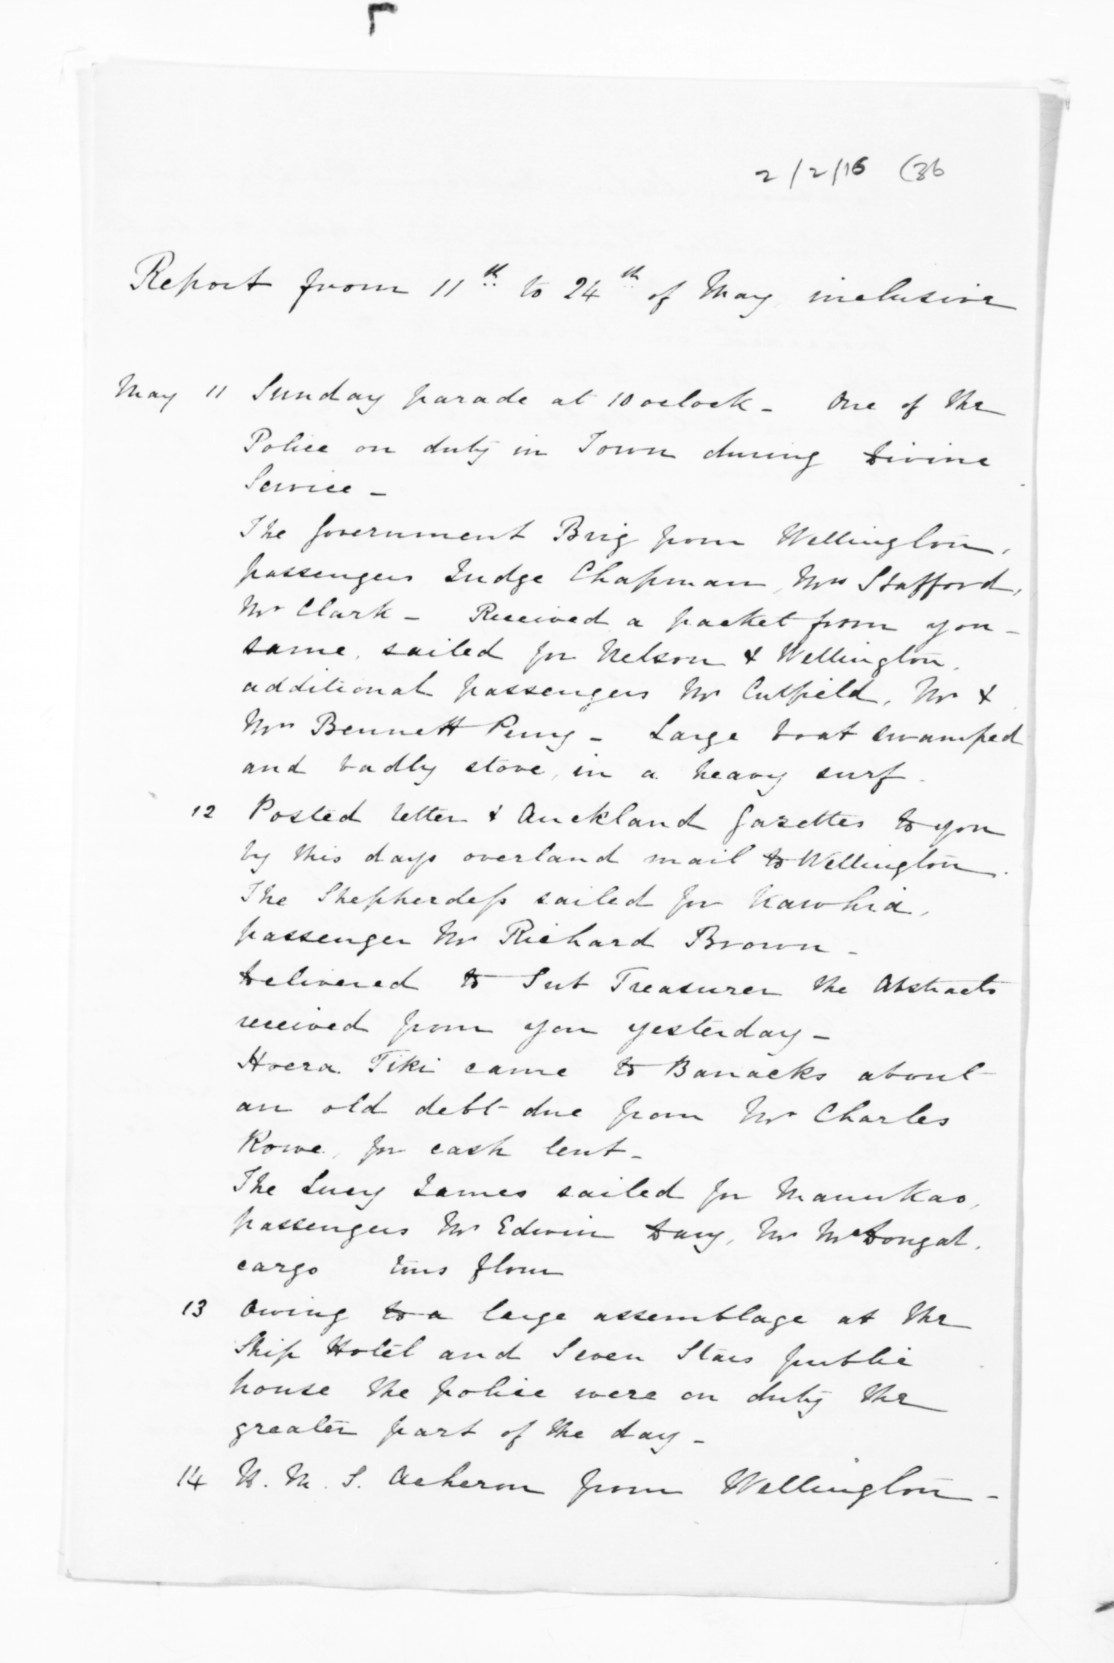 2/2/16 (36
Report from 11th to 24th of May inclusive
May 11 Sunday parade at 10 oclock - One of the
Police on duty in Town during Divine
Service -
The Government Brig from Wellington,
passengers Judge Chapman, Mrs Stafford,
Mr Clark - Received a packet from you -
same, sailed for Nelson & Wellington,
additional passengers Mr Cutfield, Mr &
Mrs Bennett Perry - Large boat swamped
and badly stove, in a heavy surf.
12 Posted letter & Auckland Gazettes to you
by this days overland mail to Wellington.
The Shepherdess sailed for Kawhia,
passenger Mr Richard Brown -
Delivered to Sub Treasurer the Abstracts
received from you yesterday -
Hoera Tiki came to Banacks about
an old debt due from Mr Charles
Rowe, for cash lent -
The Lucy James sailed for Manukao,
passengers Mr Edwin Davy, Mr McDongal,
cargo flour
13 Owing to a large assemblage at the
Ship Hotel and Seven Stars public
house the police were on duty the
greater part of the day -
14 H. M. S. Acheron from Wellington -